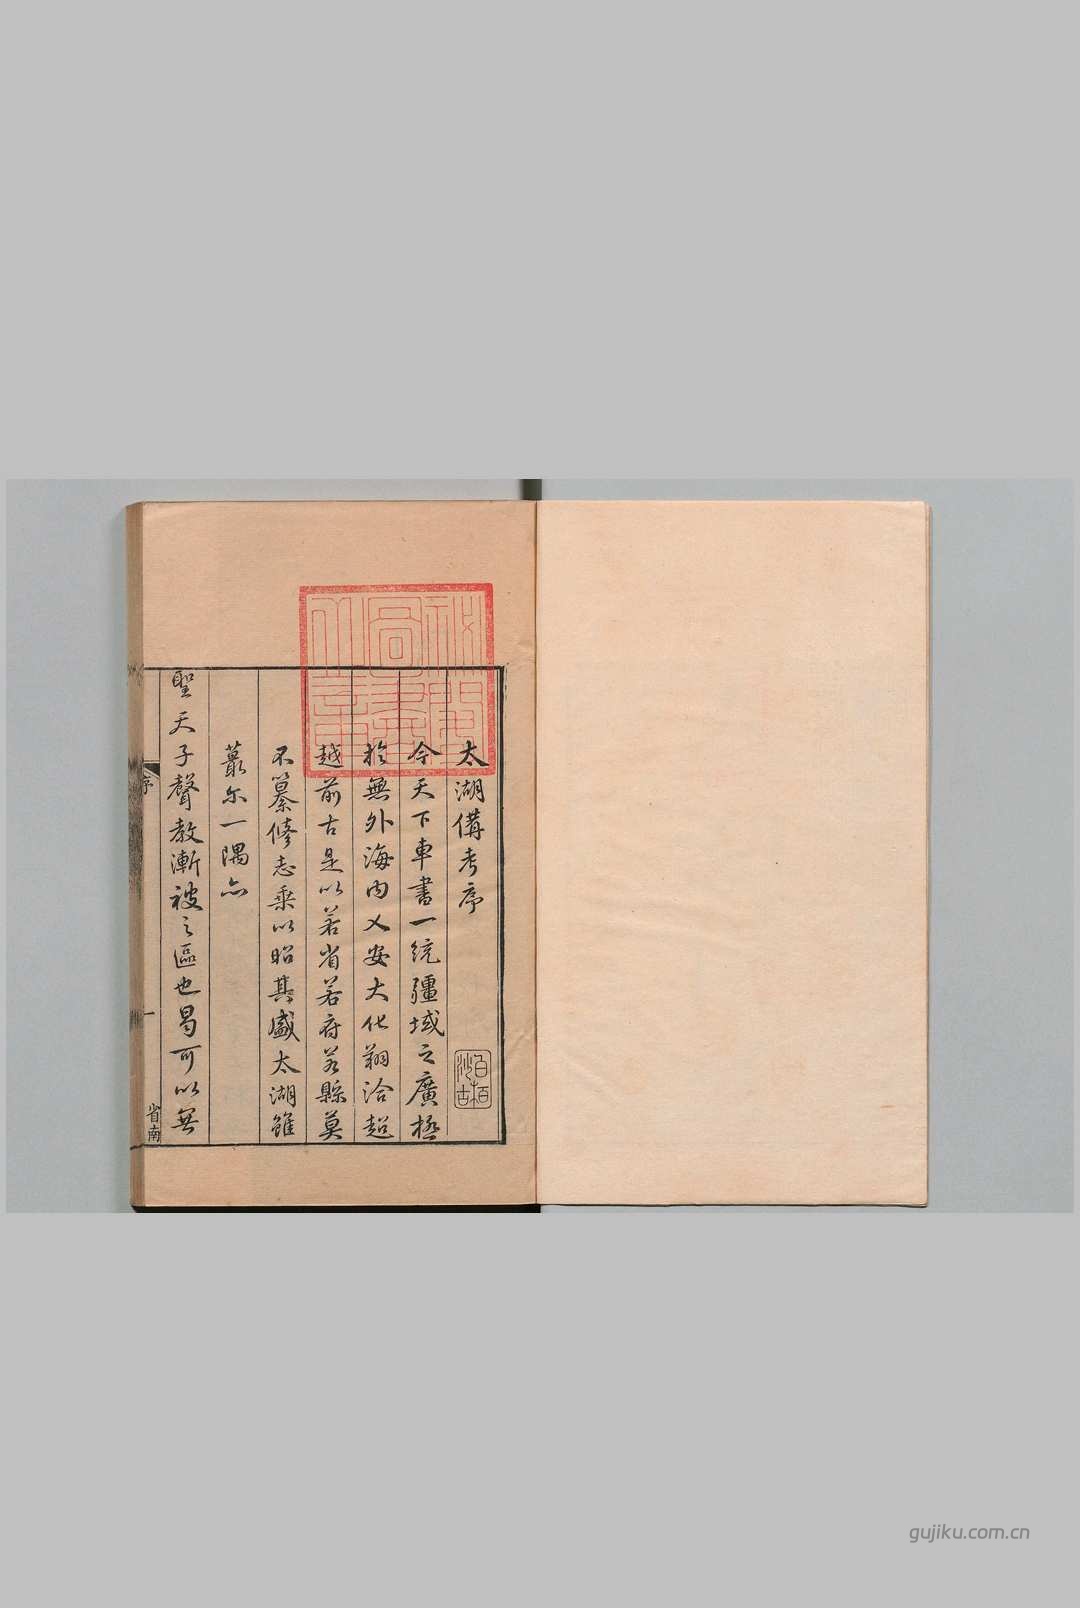 太湖備考序
今天下車書一統疆域之廣極
於無外海内乂安大化翔洽超
越前古是以若省若府若縣莫
不纂修志乘以昭其盛太湖雖
蕞尔一隅亦
聖天子聲教漸被之區也曷可以無
序
一
省南
gujiku.com.cn